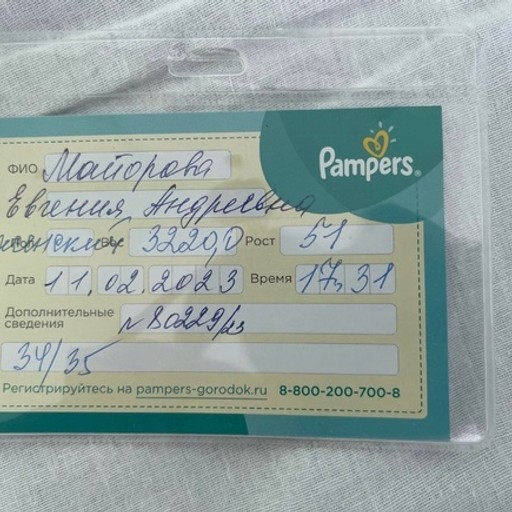 Pampers
ФИО Майорова
Евгения Андреевна
женский Вес 3220,0 Рост 51
Дата 11.02.2023 Время 17,31
Дополнительные
сведения
№80229/23
34/35
Регистрируйтесь на pampers-gorodok.ru 8-800-200-700-8